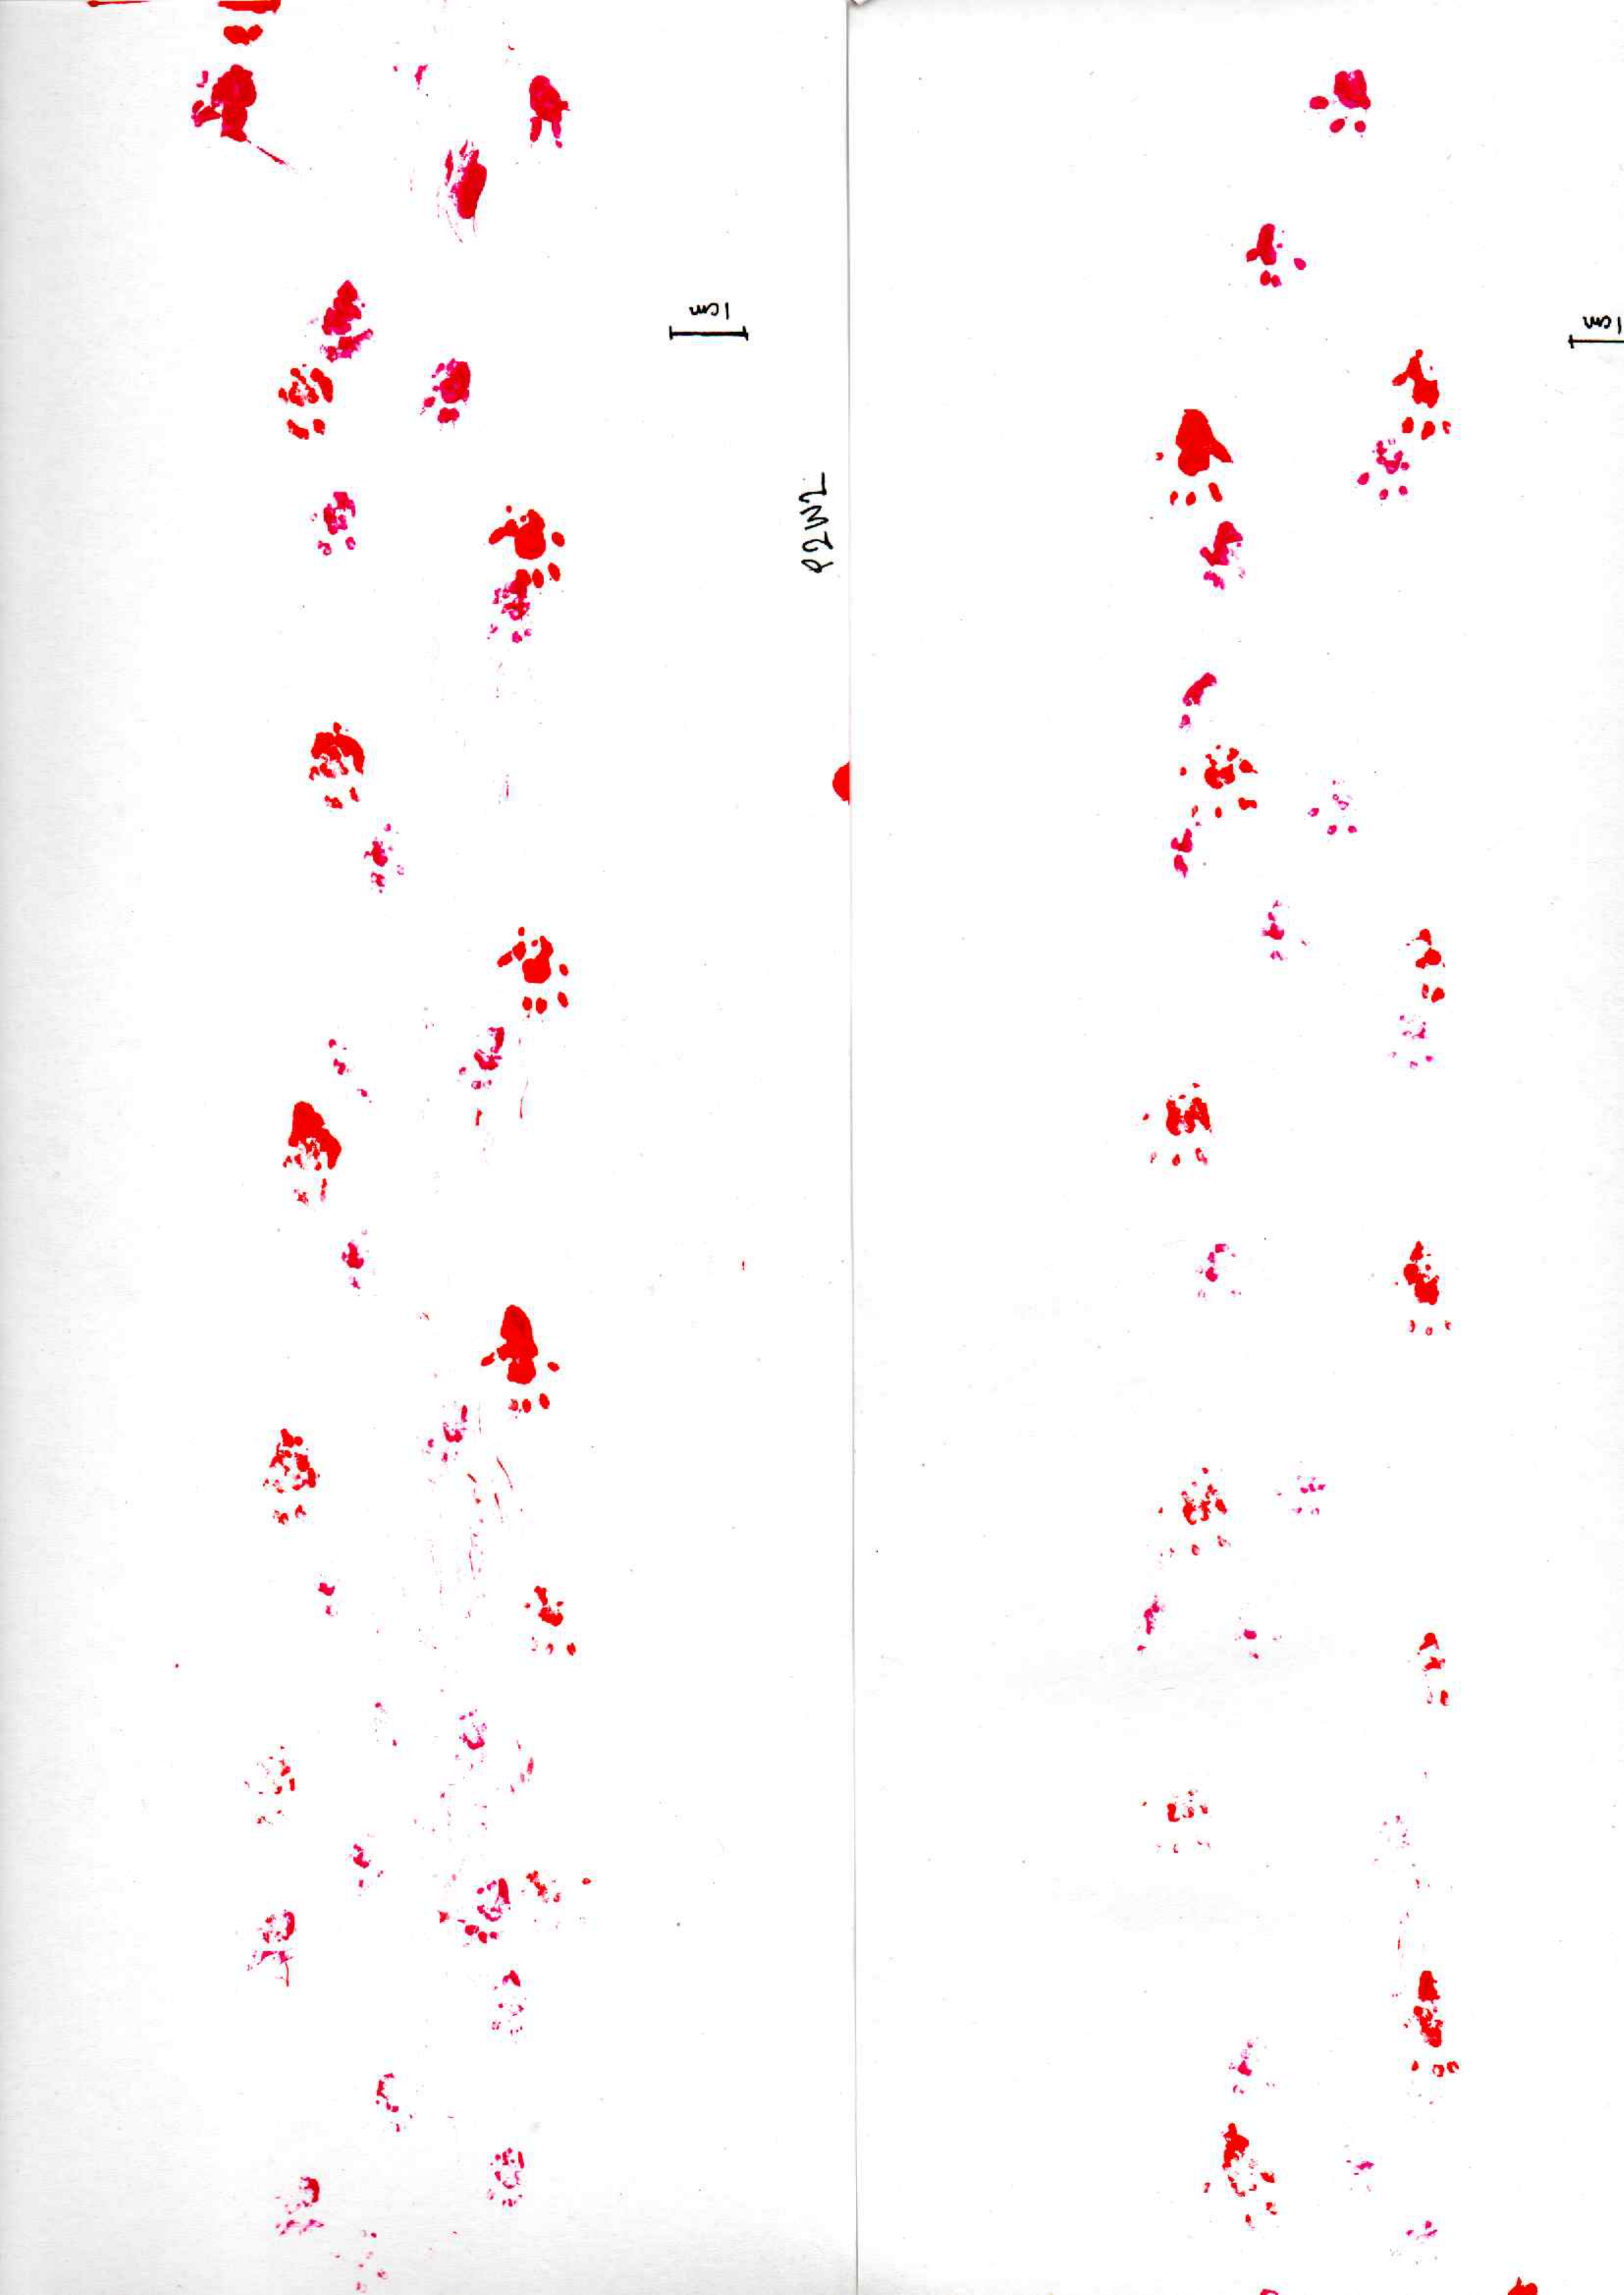 1cm
P2W2
1cm